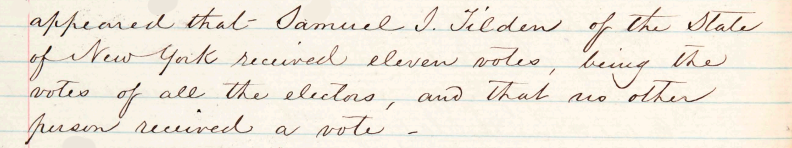 appeared that Samuel J. Tilden of the State
of New York received eleven votes, being the
votes of all the electors, and that no other
person received a vote -